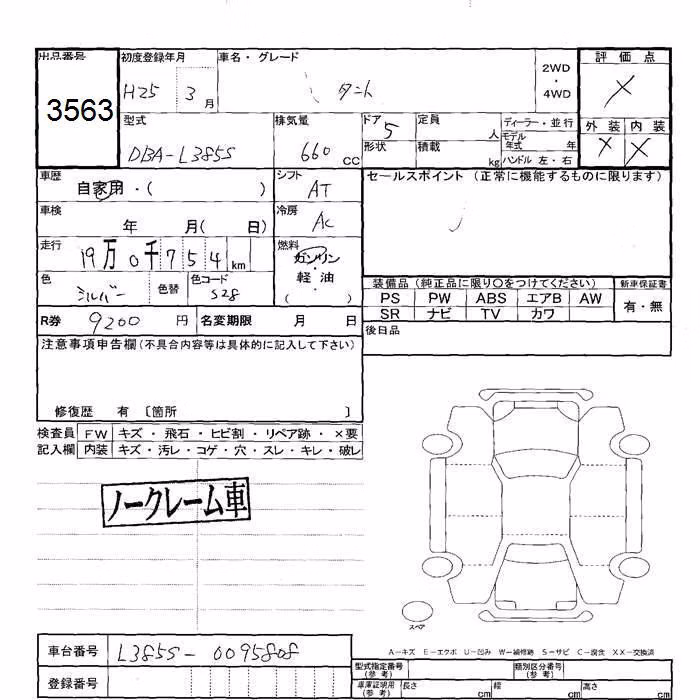 出品番号 初度登録年月 車名・グレード 2WD ・ 4WD 評価点
3563 H25 3月 タント X
型式 排気量 ドア 5 定員 人 ディーラー・並行 外装 内装
DBA-L385S 660 CC 形状 積載 kg モデル年式 年 ハンドル 左・右 X X
車歴 自家用・( ) シフト AT セールスポイント (正常に機能するものに限ります)
車検 年 月( 日) 冷房 AC
走行 19万0千754km 燃料 ガソリン・軽油 ( )
色 シルバー 色替 色コード S28 装備品 (純正品に限り〇をつけてください) 新車保証書
PS PW ABS エアB AW 有・無
SR ナビ TV カワ
R券 9200 円 名変期限 月 日 後日品
注意事項申告欄(不具合内容等は具体的に記入して下さい)
修復歴 有 〔箇所 〕
検査員 FW キズ・飛石・ヒビ割・リペア跡・×要
記入欄 内装 キズ・汚レ・コゲ・穴・スレ・キレ・破レ
ノークレーム車
スペア
A-キズ E-エクボ U-凹み W-補修跡 S-サビ C-腐食 XX-交換済
車台番号 L385S-0095808 型式指定番号(参考) 類別区分番号(参考)
登録番号 車庫証明用(参考) 長さ cm 幅 cm 高さ cm